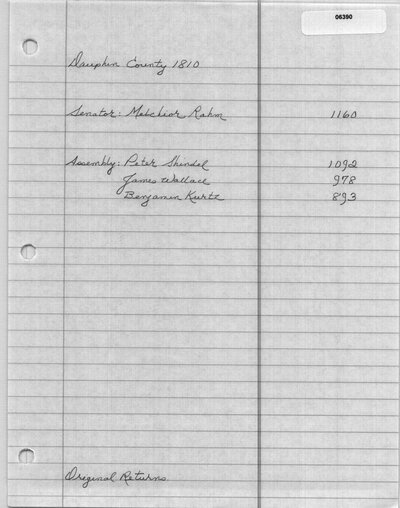 06390
Dauphin County 1810
Senator: Melchior Rahm 1160
Assembly: Peter Shindel 1092
James Wallace 978
Benjamin Kurtz 893
Original Returns